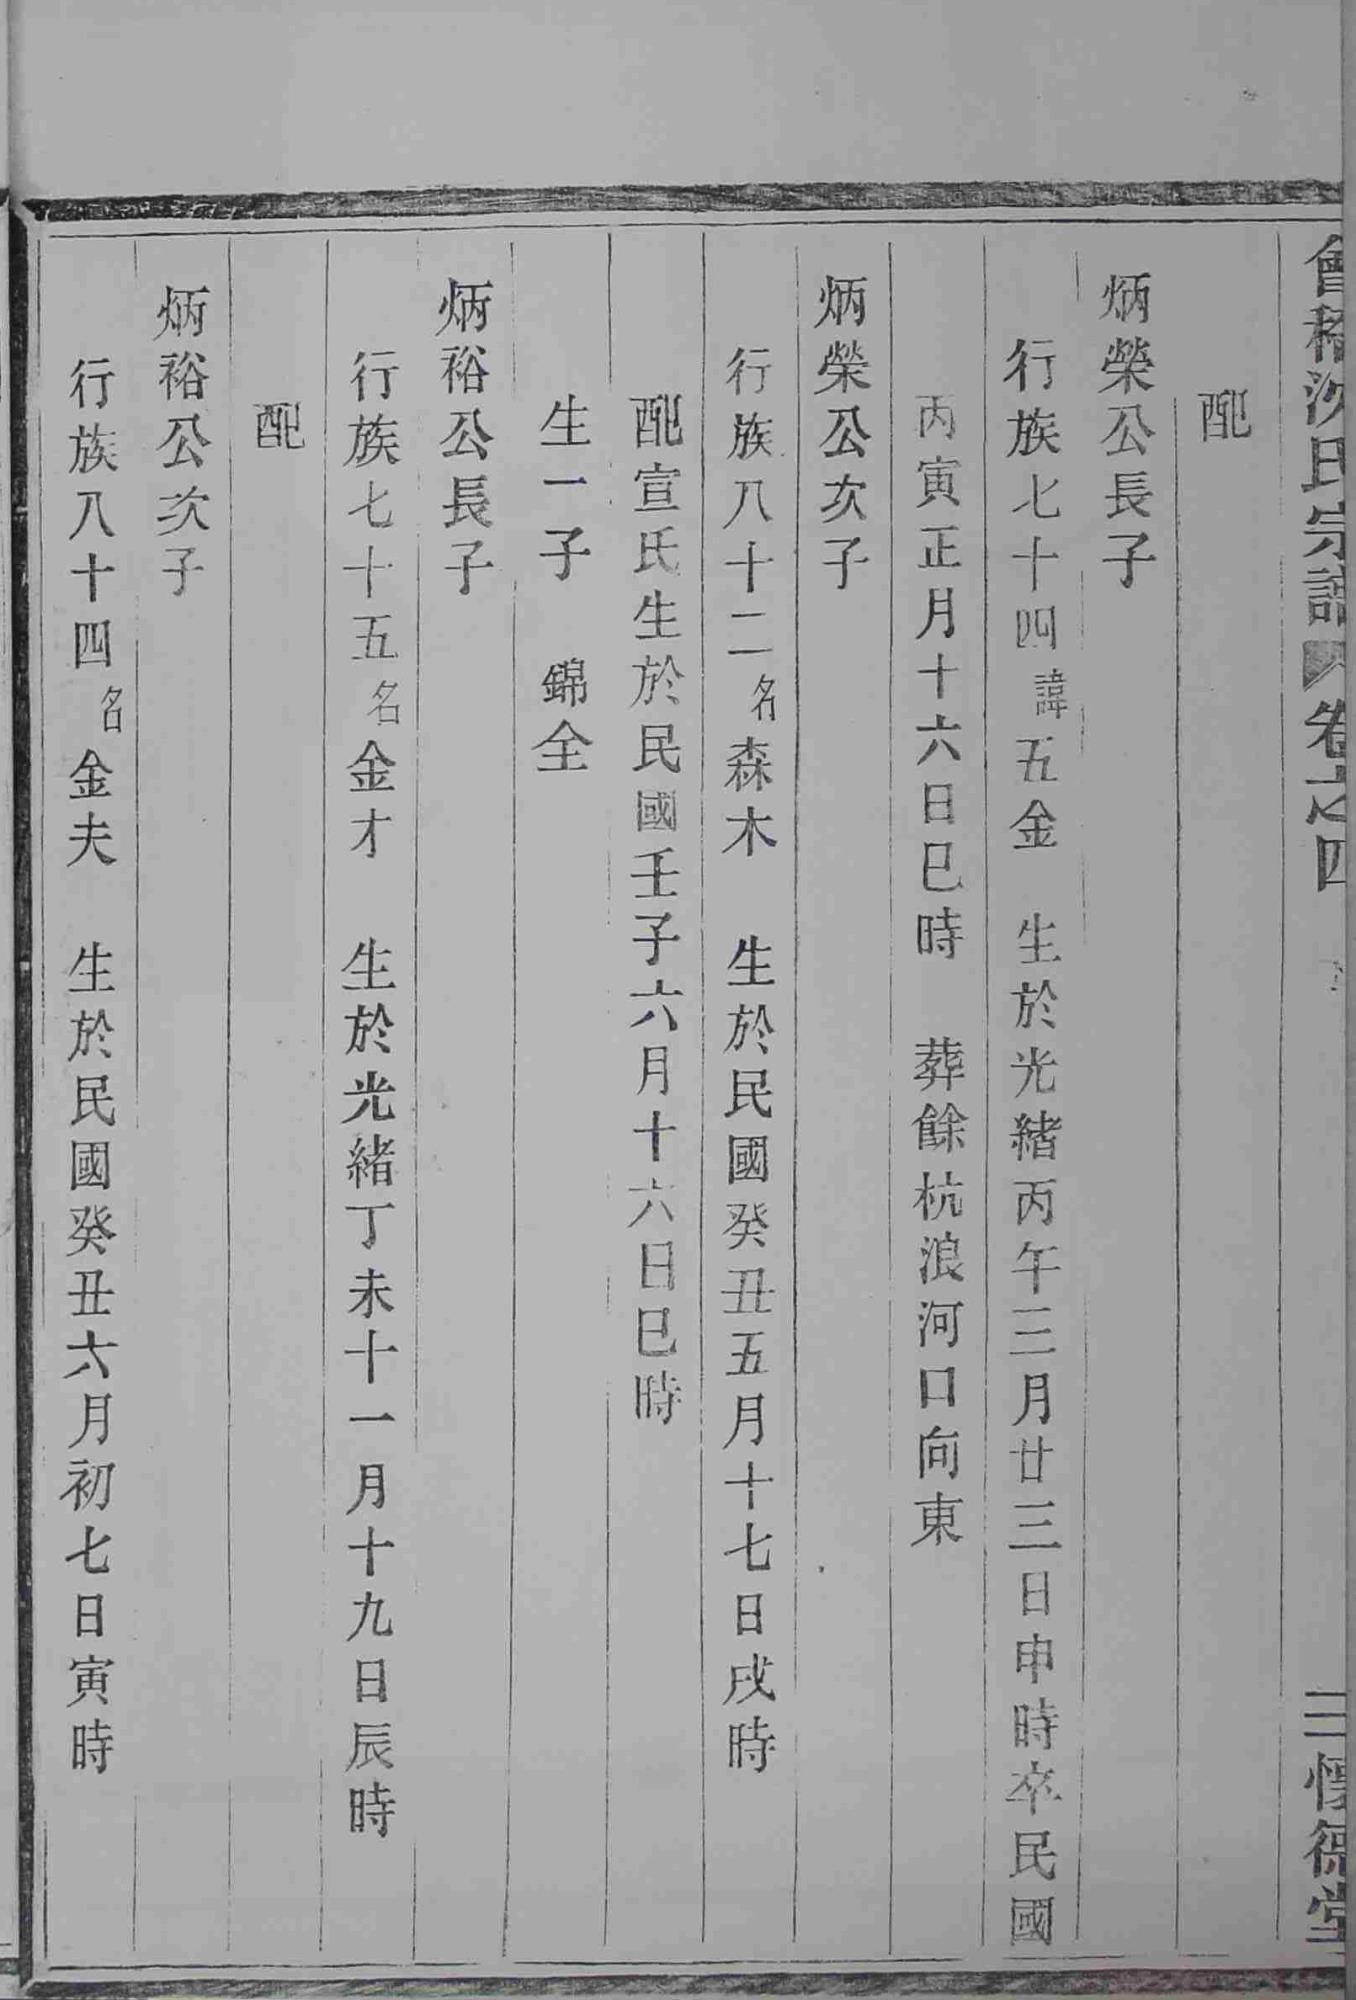 會稽沈氏宗譜 卷之四 三 惇德堂
配
炳榮公長子
行族七十四諱五金 生於光緒丙午三月廿三日申時卒民國
丙寅正月十六日巳時 葬餘杭浪河口向東
炳榮公次子
行族八十二名森木 生於民國癸丑五月十七日戌時
配宣氏生於民國壬子六月十六日巳時
生一子 錦全
炳裕公長子
行族七十五名金才 生於光緒丁未十一月十九日辰時
配
炳裕公次子
行族八十四名金夫 生於民國癸丑六月初七日寅時